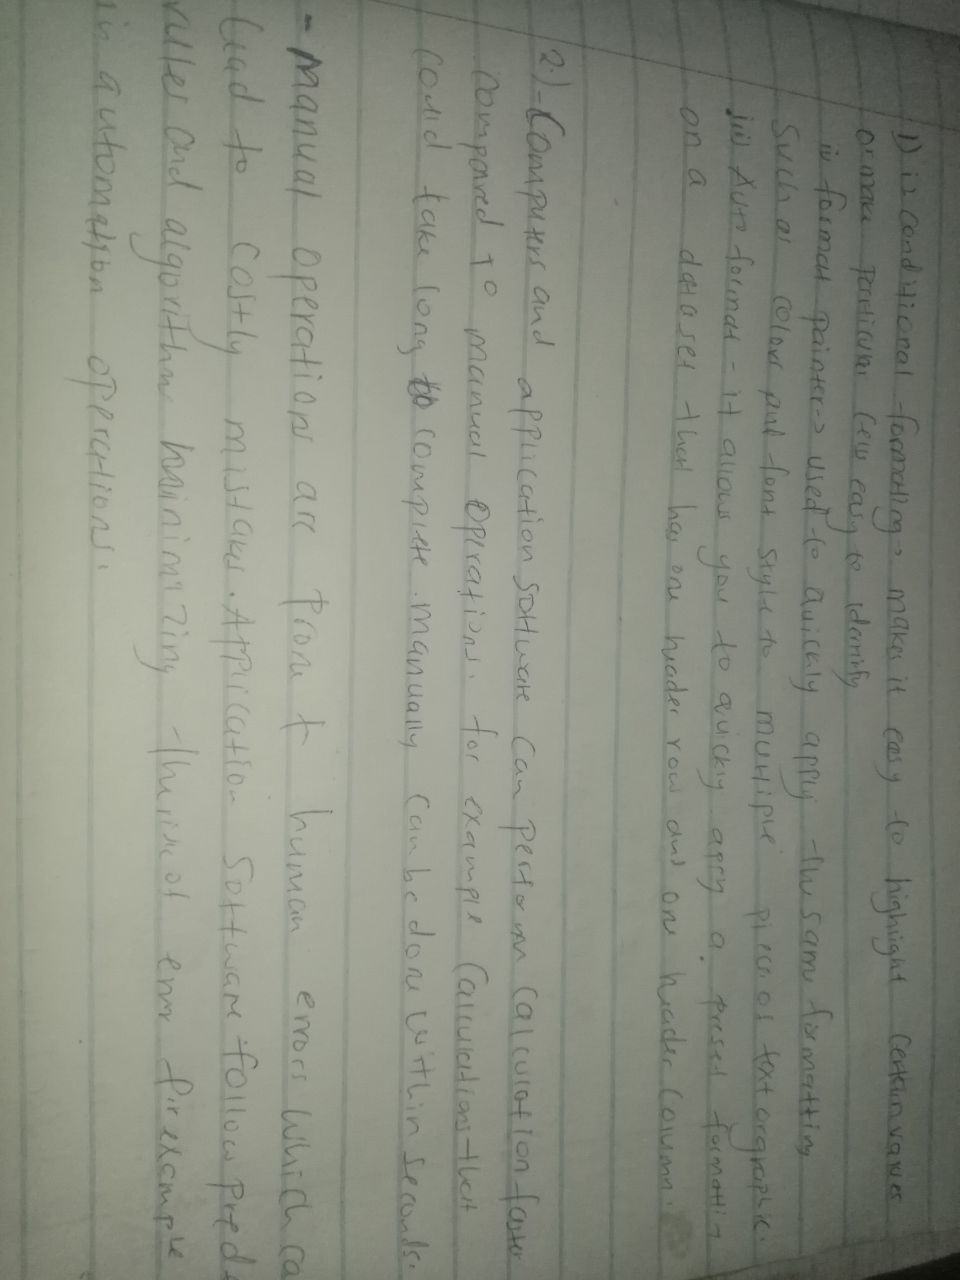 1) i> conditional formating → makes it easy to highlight certain values
or make particular cells easy to identify
ii> format painter → used to quickly apply the same formatting
such as colors and font style to multiple pieces of text or graphic.
iii> Auto format - it allows you to quickly apply a preset formatting
on a dataset that has one header row and one header column.
2.) - Computers and application software can perform calculation faster
compared to manual operations. for example calculations that
could take long to complete manually can be done within seconds.
- manual operations are prone t human errors which ca
lead to costly mistakes. Application software follow pred
rules and algorithm minimizing the risk of error for example
in automation operations.